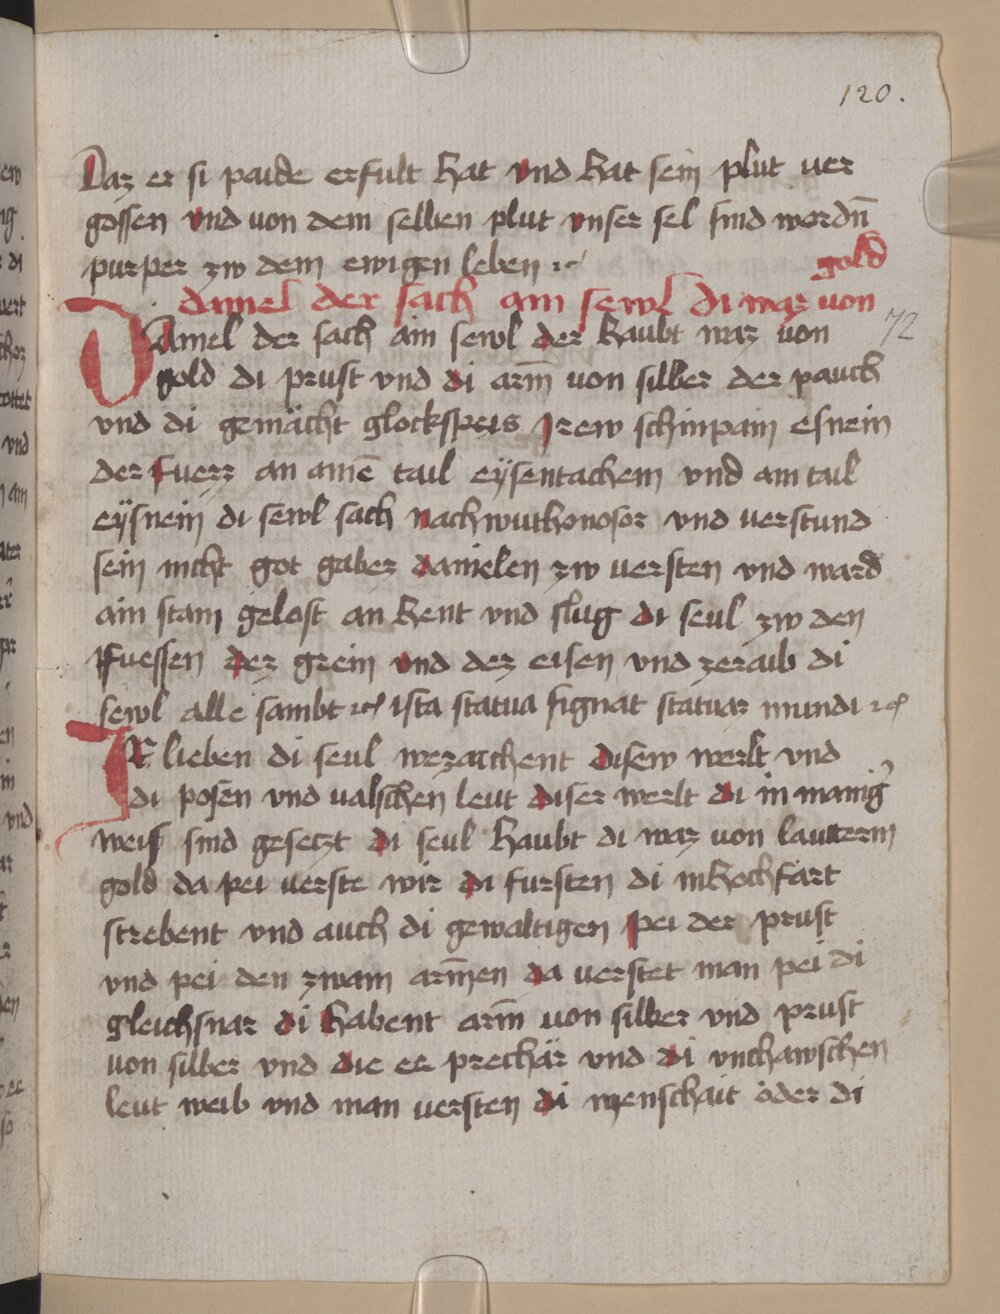 120.
Daz er si paide erfult hat vnd hat sein plut ver
gossen vnd von dem selben plut vnser sel sind wordn̄
purper zw dem ewigen leben ⁊c
gold
daniel der sach ain sewl di waz von
72
Daniel der sach ain sewl der haubt waz von
gold di prust vnd di arm̄ von silber der pauch
vnd di gemächt glockspeis Irew schinpain esnein
der fuezz an ainē tail eÿsentachein vnd ain tail
eÿsnein di sewl sach nachwuthonosor vnd verstund
sein nicht got gabez danielen zw versten vnd ward
ain stain gelost an hent vnd slug di seul zw den
fuessen dez grein vnd dez eisen vnd zeraib di
sewl alle sambt ⁊c ista statua signat statuaz mundi ⁊c
Ir lieben di seul wezaichent disew werlt vnd
di posen vnd valschen leut diser werlt di in manig̉
weis sind gesetzt di seul haubt di waz von lauterm
gold da pei verste wir di fursten di in hochfart
strebent vnd auch di gewaltigen pei der prust
vnd pei den zwain arm̄en da verstet man pei di
gleichsnar di habent arm̄ von silber vnd prust
von silber vnd die ee prechär vnd di vnchawschen
leut weib vnd man versten di menschait oder di